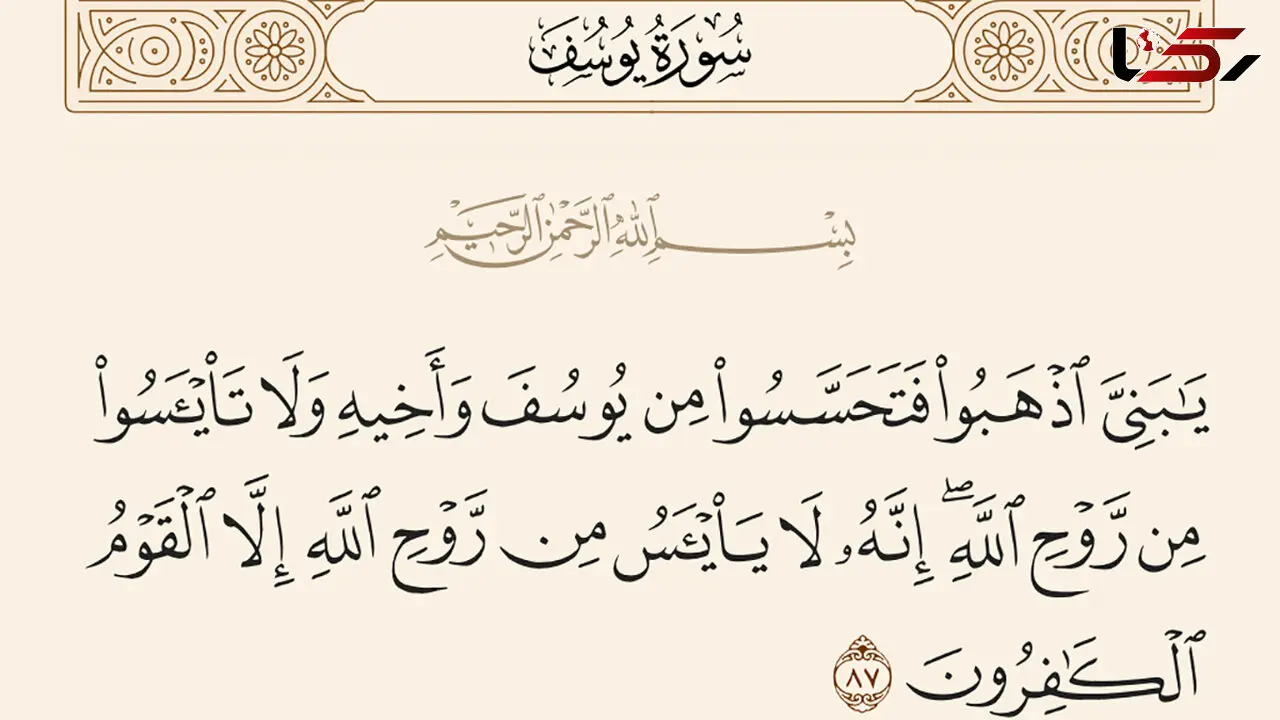 سُورَةُ يُوسُفَ
رکنا
بِسْمِ ٱللَّهِ ٱلرَّحْمَٰنِ ٱلرَّحِيمِ
يَـٰبَنِىَّ ٱذْهَبُوا۟ فَتَحَسَّسُوا۟ مِن يُوسُفَ وَأَخِيهِ وَلَا تَا۟يْـَٔسُوا۟
مِن رَّوْحِ ٱللَّهِ ۖ إِنَّهُۥ لَا يَا۟يْـَٔسُ مِن رَّوْحِ ٱللَّهِ إِلَّا ٱلْقَوْمُ
ٱلْكَـٰفِرُونَ ٨٧